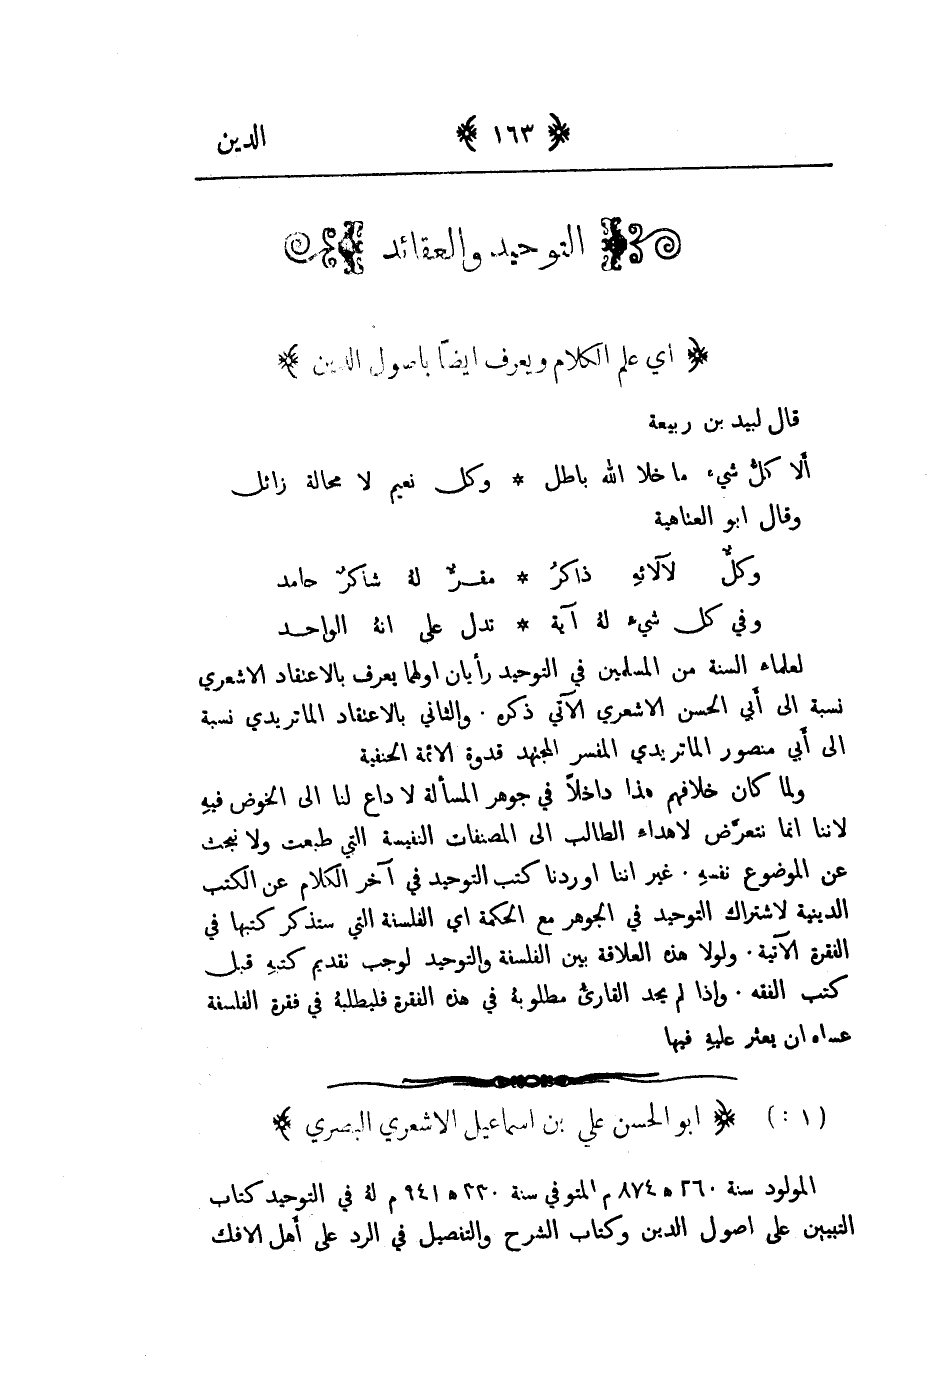 ﴿ ١٦٣ ﴾ الدين
التوحيد والعقائد
﴿ اي علم الكلام ويعرف ايضاً باصول الدين ﴾
قال لبيد بن ربيعة
أَلا كلُّ شيء ما خلا الله باطل * وكل نعيم لا محالة زائل
وقال ابو العتاهية
وكلٌّ لآلائهِ ذاكرُ * مقرٌّ لهُ شاكرٌ حامد
وفي كل شيء لهُ آية * تدل على انهُ الواحد
لعلماء السنة من المسلمين في التوحيد رأيان اولهما يعرف بالاعتقاد الاشعري
نسبة الى أبي الحسن الاشعري الآتي ذكره ٠ والثاني بالاعتقاد الماتريدي نسبة
الى أبي منصور الماتريدي المفسر المجتهد قدوة الائمة الحنفية
ولما كان خلافهم هذا داخلاً في جوهر المسألة لا داع لنا الى الخوض فيهِ
لاننا انما نتعرَّض لاهداء الطالب الى المصنفات النفيسة التي طبعت ولا نبحث
عن الموضوع نفسهِ ٠ غير اننا اوردنا كتب التوحيد في آخر الكلام عن الكتب
الدينية لاشتراك التوحيد في الجوهر مع الحكمة اي الفلسفة التي سنذكر كتبها في
الفقرة الآتية ٠ ولولا هذه العلاقة بين الفلسفة والتوحيد لوجب تقديم كتبهِ قبل
كتب الفقه ٠ واذا لم يجد القارئُ مطلوبهُ في هذه الفقرة فليطلبهُ في فقرة الفلسفة
عساه ان يعثر عليهِ فيها
(١ :) ﴿ ابو الحسن علي بن اسماعيل الاشعري البصري ﴾
المولود سنة ٢٦٠ ه ٨٧٤ م المتوفي سنة ٣٣٠ ه ٩٤١ م لهُ في التوحيد كتاب
التبيين على اصول الدين وكتاب الشرح والتفصيل في الرد على أهل الافك